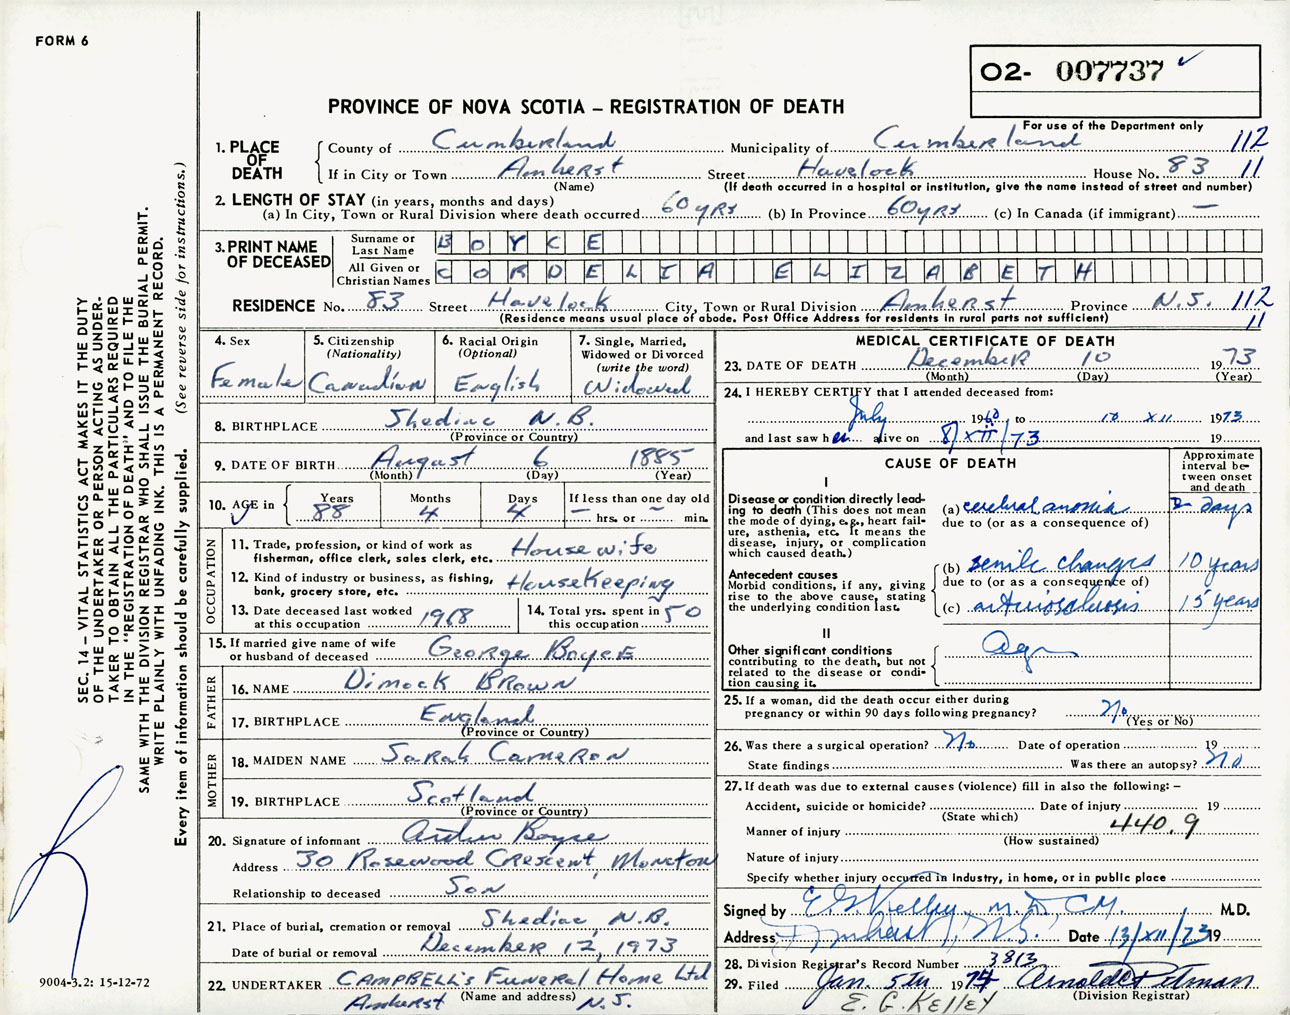 FORM 6
02- 007737 ✓
PROVINCE OF NOVA SCOTIA – REGISTRATION OF DEATH
For use of the Department only
1. PLACE OF DEATH
County of Cumberland Municipality of Cumberland 112
If in City or Town Amherst Street Havelock House No. 83 11
(Name) (If death occurred in a hospital or institution, give the name instead of street and number)
2. LENGTH OF STAY (in years, months and days)
(a) In City, Town or Rural Division where death occurred 60 yrs (b) In Province 60 yrs (c) In Canada (if immigrant) —
3. PRINT NAME OF DECEASED
Surname or Last Name BOYCE
All Given or Christian Names CORDELIA ELIZABETH
RESIDENCE No. 83 Street Havelock City, Town or Rural Division Amherst Province N.S. 112
(Residence means usual place of abode. Post Office Address for residents in rural parts not sufficient) 11
4. Sex
Female
5. Citizenship
(Nationality)
Canadian
6. Racial Origin
(Optional)
English
7. Single, Married,
Widowed or Divorced
(write the word)
Widowed
8. BIRTHPLACE Shediac N.B.
(Province or Country)
9. DATE OF BIRTH August 6 1885
(Month) (Day) (Year)
10. AGE in Years 88 Months 4 Days 4 If less than one day old
— hrs. or — min.
OCCUPATION
11. Trade, profession, or kind of work as
fisherman, office clerk, sales clerk, etc. Housewife
12. Kind of industry or business, as fishing,
bank, grocery store, etc. HouseKeeping
13. Date deceased last worked
at this occupation 1968
14. Total yrs. spent in
this occupation 50
15. If married give name of wife
or husband of deceased George Boyce
FATHER
16. NAME Dimock Brown
17. BIRTHPLACE England
(Province or Country)
MOTHER
18. MAIDEN NAME Sarah Cameron
19. BIRTHPLACE Scotland
(Province or Country)
20. Signature of informant Arthur Boyce
Address 30 Rosewood Crescent, Moncton
Relationship to deceased Son
21. Place of burial, cremation or removal Shediac, N.B.
Date of burial or removal December 12, 1973
22. UNDERTAKER Campbell's Funeral Home Ltd
(Name and address)
Amherst N.S.
MEDICAL CERTIFICATE OF DEATH
23. DATE OF DEATH December 10 1973
(Month) (Day) (Year)
24. I HEREBY CERTIFY that I attended deceased from:
July 1960 to 10 XII 1973
and last saw her alive on 8/XII/73 19
CAUSE OF DEATH
Approximate
interval be-
tween onset
and death
I
Disease or condition directly lead-
ing to death (This does not
mean the mode of dying, e.g., heart fail-
ure, asthenia, etc. It means the
disease, injury, or complication
which caused death.)
(a) cerebral anoxia 2 days
due to (or as a consequence of)
Antecedent causes
Morbid conditions, if any, giving
rise to the above cause, stating
the underlying condition last.
(b) senile changes 10 years
due to (or as a consequence of)
(c) arteriosclerosis 15 years
II
Other significant conditions
contributing to the death, but not
related to the disease or condi-
tion causing it.
Age
25. If a woman, did the death occur either during
pregnancy or within 90 days following pregnancy? No
(Yes or No)
26. Was there a surgical operation? No Date of operation 19
State findings Was there an autopsy? No
27. If death was due to external causes (violence) fill in also the following: –
Accident, suicide or homicide? Date of injury 19
(State which)
Manner of injury 440.9
(How sustained)
Nature of injury
Specify whether injury occurred in Industry, in home, or in public place
Signed by E G Kelley, M.D., C.M. M.D.
Address Amherst, N.S. Date 13/XII/73 19
28. Division Registrar's Record Number 3813
29. Filed Jan. 5th 1974 Arnold E Petman
(Division Registrar)
E. G. KELLEY
SEC. 14 – VITAL STATISTICS ACT MAKES IT THE DUTY
OF THE UNDERTAKER OR PERSON ACTING AS UNDER-
TAKER TO OBTAIN ALL THE PARTICULARS REQUIRED
IN THE "REGISTRATION OF DEATH" AND TO FILE THE
SAME WITH THE DIVISION REGISTRAR WHO SHALL ISSUE THE BURIAL PERMIT.
WRITE PLAINLY WITH UNFADING INK. THIS IS A PERMANENT RECORD.
Every item of information should be carefully supplied. (See reverse side for instructions.)
9004-3.2: 15-12-72